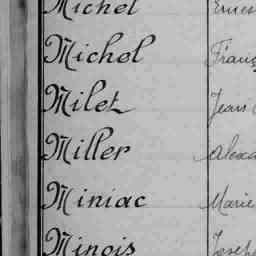 Michel
Michel Franç
Milet Jean
Miller Alexa
Miniac Marie
Minois Joseph